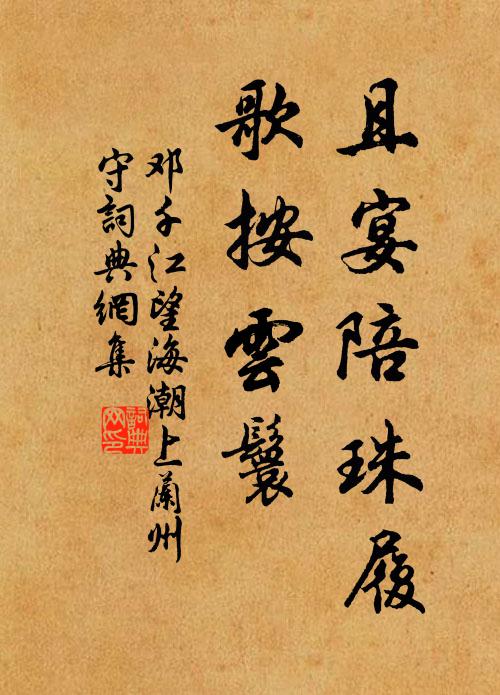 且宴陪珠履
歌按雲鬟
邓千江望海潮上蘭州
守詞典網集
詞典
网印